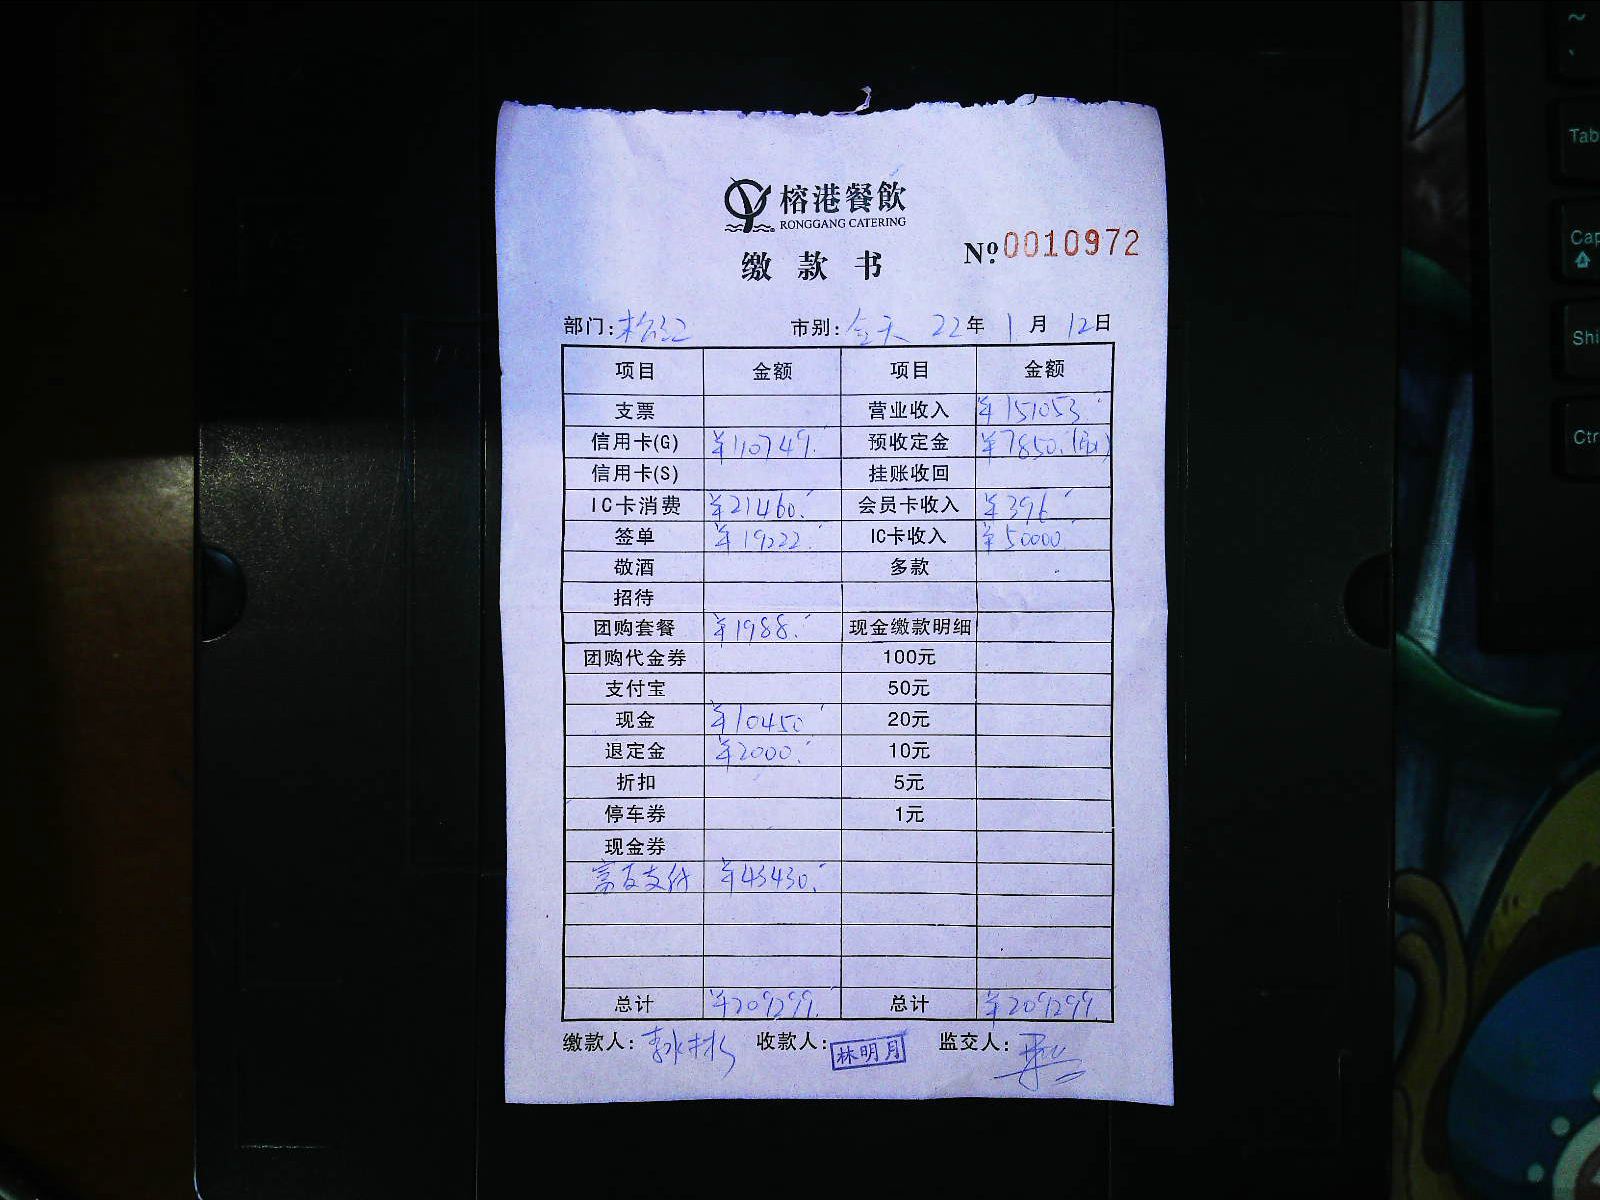 榕港餐飲
RONGGANG CATERING
缴款书 №0010972
部门:松江 市别:全天 22年 1月 12日
项目 金额 项目 金额
支票 营业收入 ¥151053.
信用卡(G) ¥110749. 预收定金 ¥7850.
信用卡(S) 挂账收回
IC卡消费 ¥21460. 会员卡收入 ¥396
签单 ¥19222. IC卡收入 ¥50000
敬酒 多款
招待
团购套餐 ¥1988. 现金缴款明细
团购代金券 100元
支付宝 50元
现金 ¥10450 20元
退定金 ¥2000. 10元
折扣 5元
停车券 1元
现金券
富友支付 ¥43430.
总计 ¥209299. 总计 ¥209299.
缴款人: 收款人:林明月 监交人:
~
`
Tab
Cap
Shi
Ctr